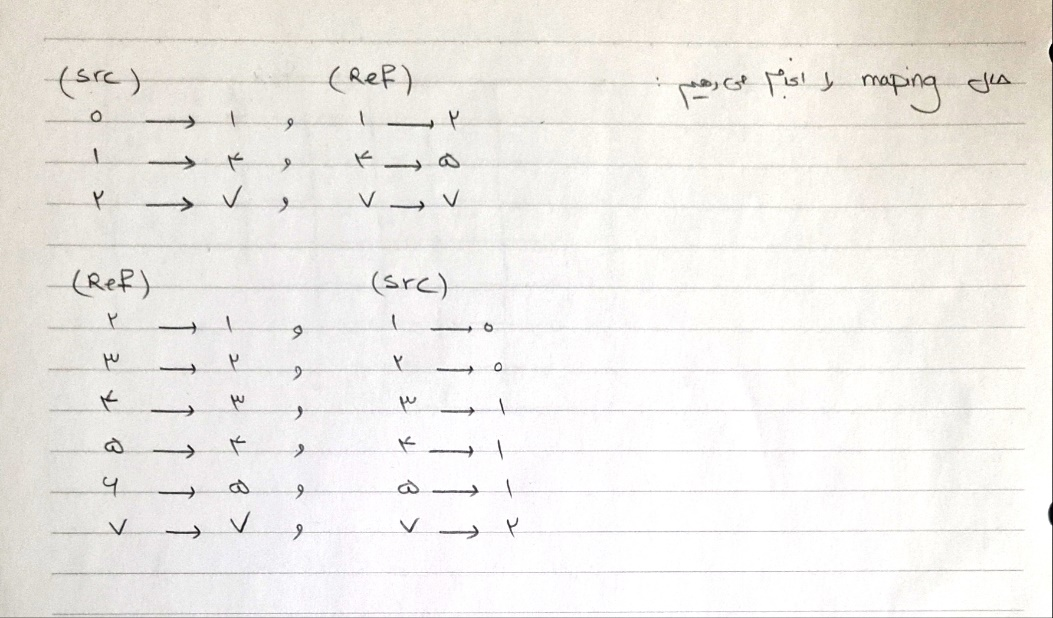 حال maping را انجام می‌دهیم :
(Src) (Ref)
۰ → ۱ , ۱ → ۲
۱ → ۴ , ۴ → ۵
۲ → ۷ , ۷ → ۷
(Ref) (Src)
۲ → ۱ , ۱ → ۰
۳ → ۲ , ۲ → ۰
۴ → ۳ , ۳ → ۱
۵ → ۴ , ۴ → ۱
۶ → ۵ , ۵ → ۱
۷ → ۷ , ۷ → ۲